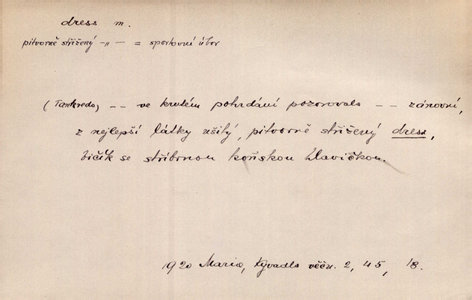 dress m.
pitvorně střižený -„- = sportovní úbor
(Tankredo) -- ve krutém pohrdání pozorovala -- zánovní,
z nejlepší látky ušitý, pitvorně střižený dress,
bičík se stříbrnou koňskou hlavičkou.
1920 Maria, Kyvadlo věčn. 2, 45, /8.